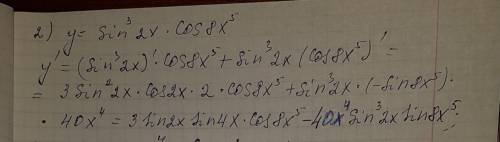 2) y = Sin³2x · Cos8x⁵
y' = (Sin³2x)' · Cos8x⁵ + Sin³2x (Cos8x⁵)' =
= 3Sin²2x · Cos2x · 2 · Cos8x⁵ + Sin³2x · (-Sin8x⁵) ·
· 40x⁴ = 3Sin2x Sin4x · Cos8x⁵ - 40x⁴ Sin³2x Sin8x⁵